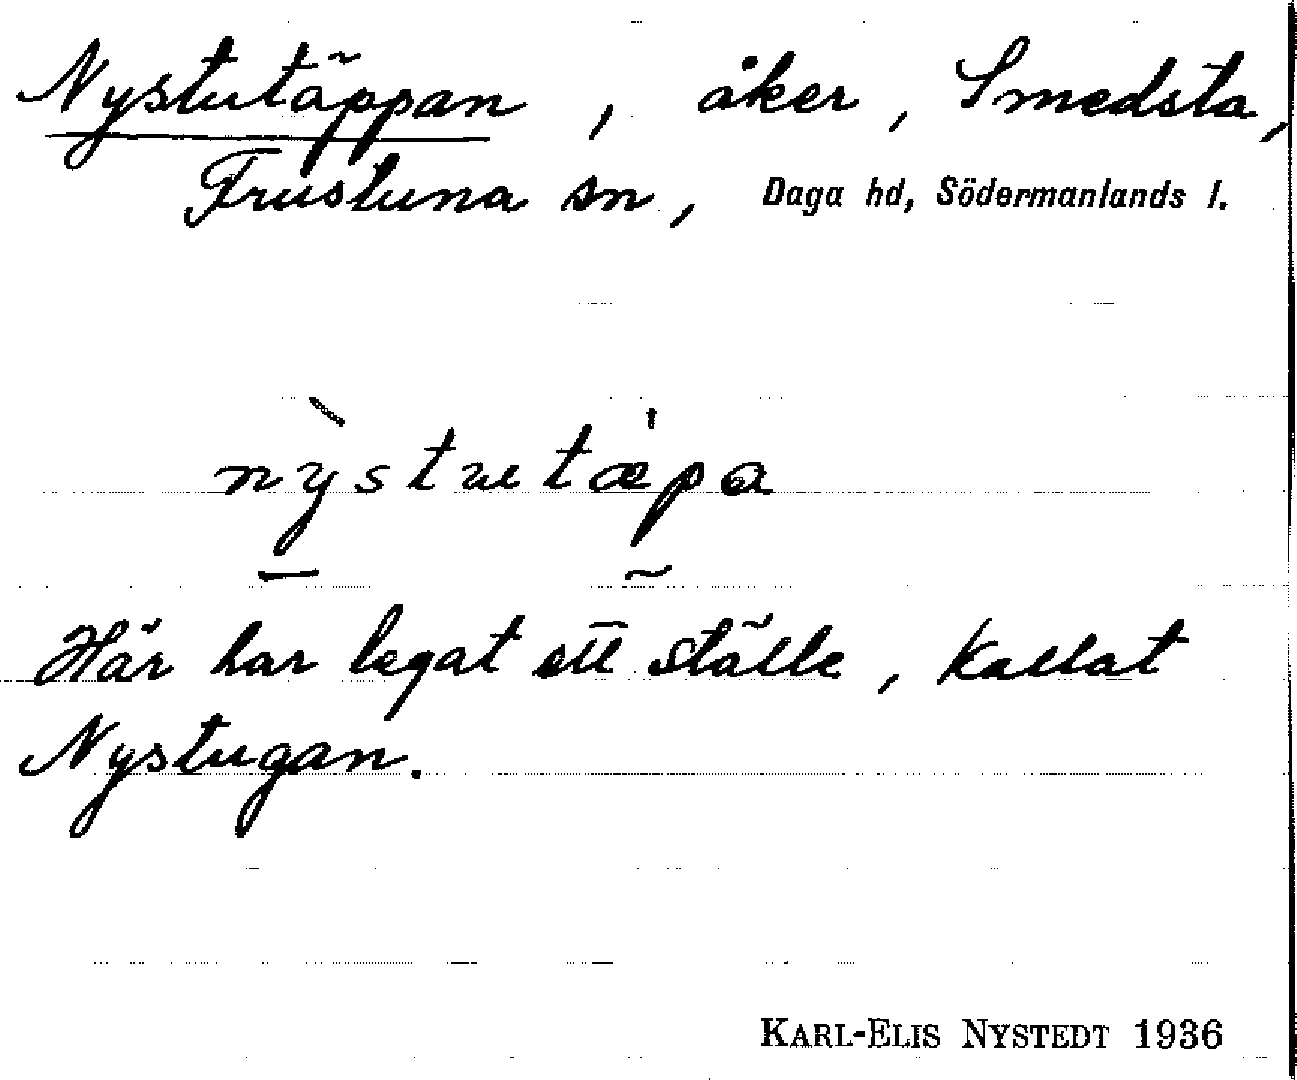 Nystutäppan, åker, Smedsta,
Frustuna sn, Daga hd, Södermanlands l.
nỳstɯtæ̍pa
Här har legat ett ställe, kallat
Nystugan.
KARL-ELIS NYSTEDT 1936